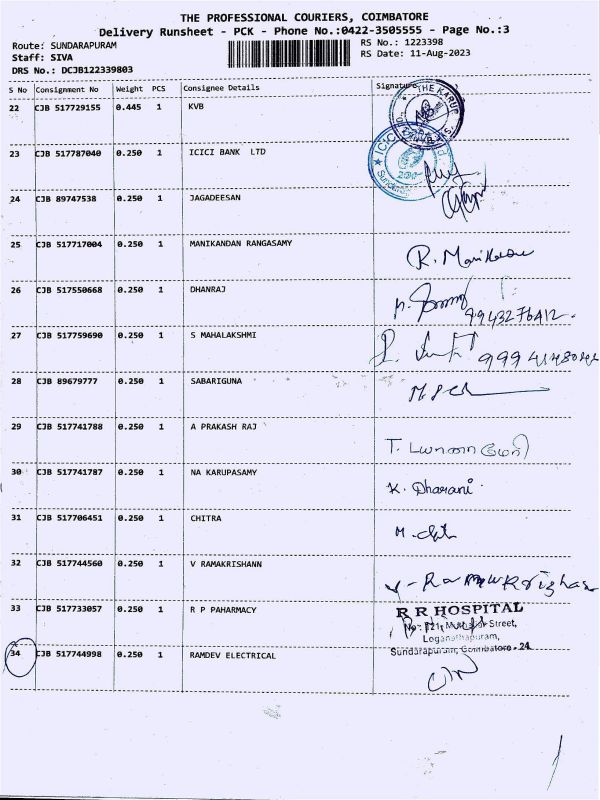 THE PROFESSIONAL COURIERS, COIMBATORE
Delivery Runsheet - PCK - Phone No.:0422-3505555 - Page No.:3
Route: SUNDARAPURAM RS No.: 1223398
Staff: SIVA RS Date: 11-Aug-2023
DRS No.: DCJB122339803
S No Consignment No Weight PCS Consignee Details Signature
22 CJB 517729155 0.445 1 KVB
THE KARUR
23 CJB 517787040 0.250 1 ICICI BANK LTD
24 CJB 89747538 0.250 1 JAGADEESAN
25 CJB 517717004 0.250 1 MANIKANDAN RANGASAMY
26 CJB 517550668 0.250 1 DHANRAJ
9943276412.
27 CJB 517759690 0.250 1 S MAHALAKSHMI
28 CJB 89679777 0.250 1 SABARIGUNA
29 CJB 517741788 0.250 1 A PRAKASH RAJ
30 CJB 517741787 0.250 1 NA KARUPASAMY K. Dharani
31 CJB 517706451 0.250 1 CHITRA
32 CJB 517744560 0.250 1 V RAMAKRISHANN
33 CJB 517733057 0.250 1 R P PAHARMACY
R R HOSPITAL
Street,
Loganathapuram,
Sundarapuram, Coimbatore - 24
34 CJB 517744998 0.250 1 RAMDEV ELECTRICAL